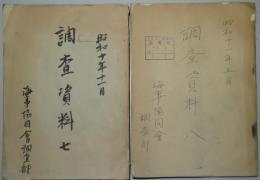 昭和十年十一月
調査資料七
海事協同會調査部
昭和十一年五月
調査資料八
海事協同會
調査部